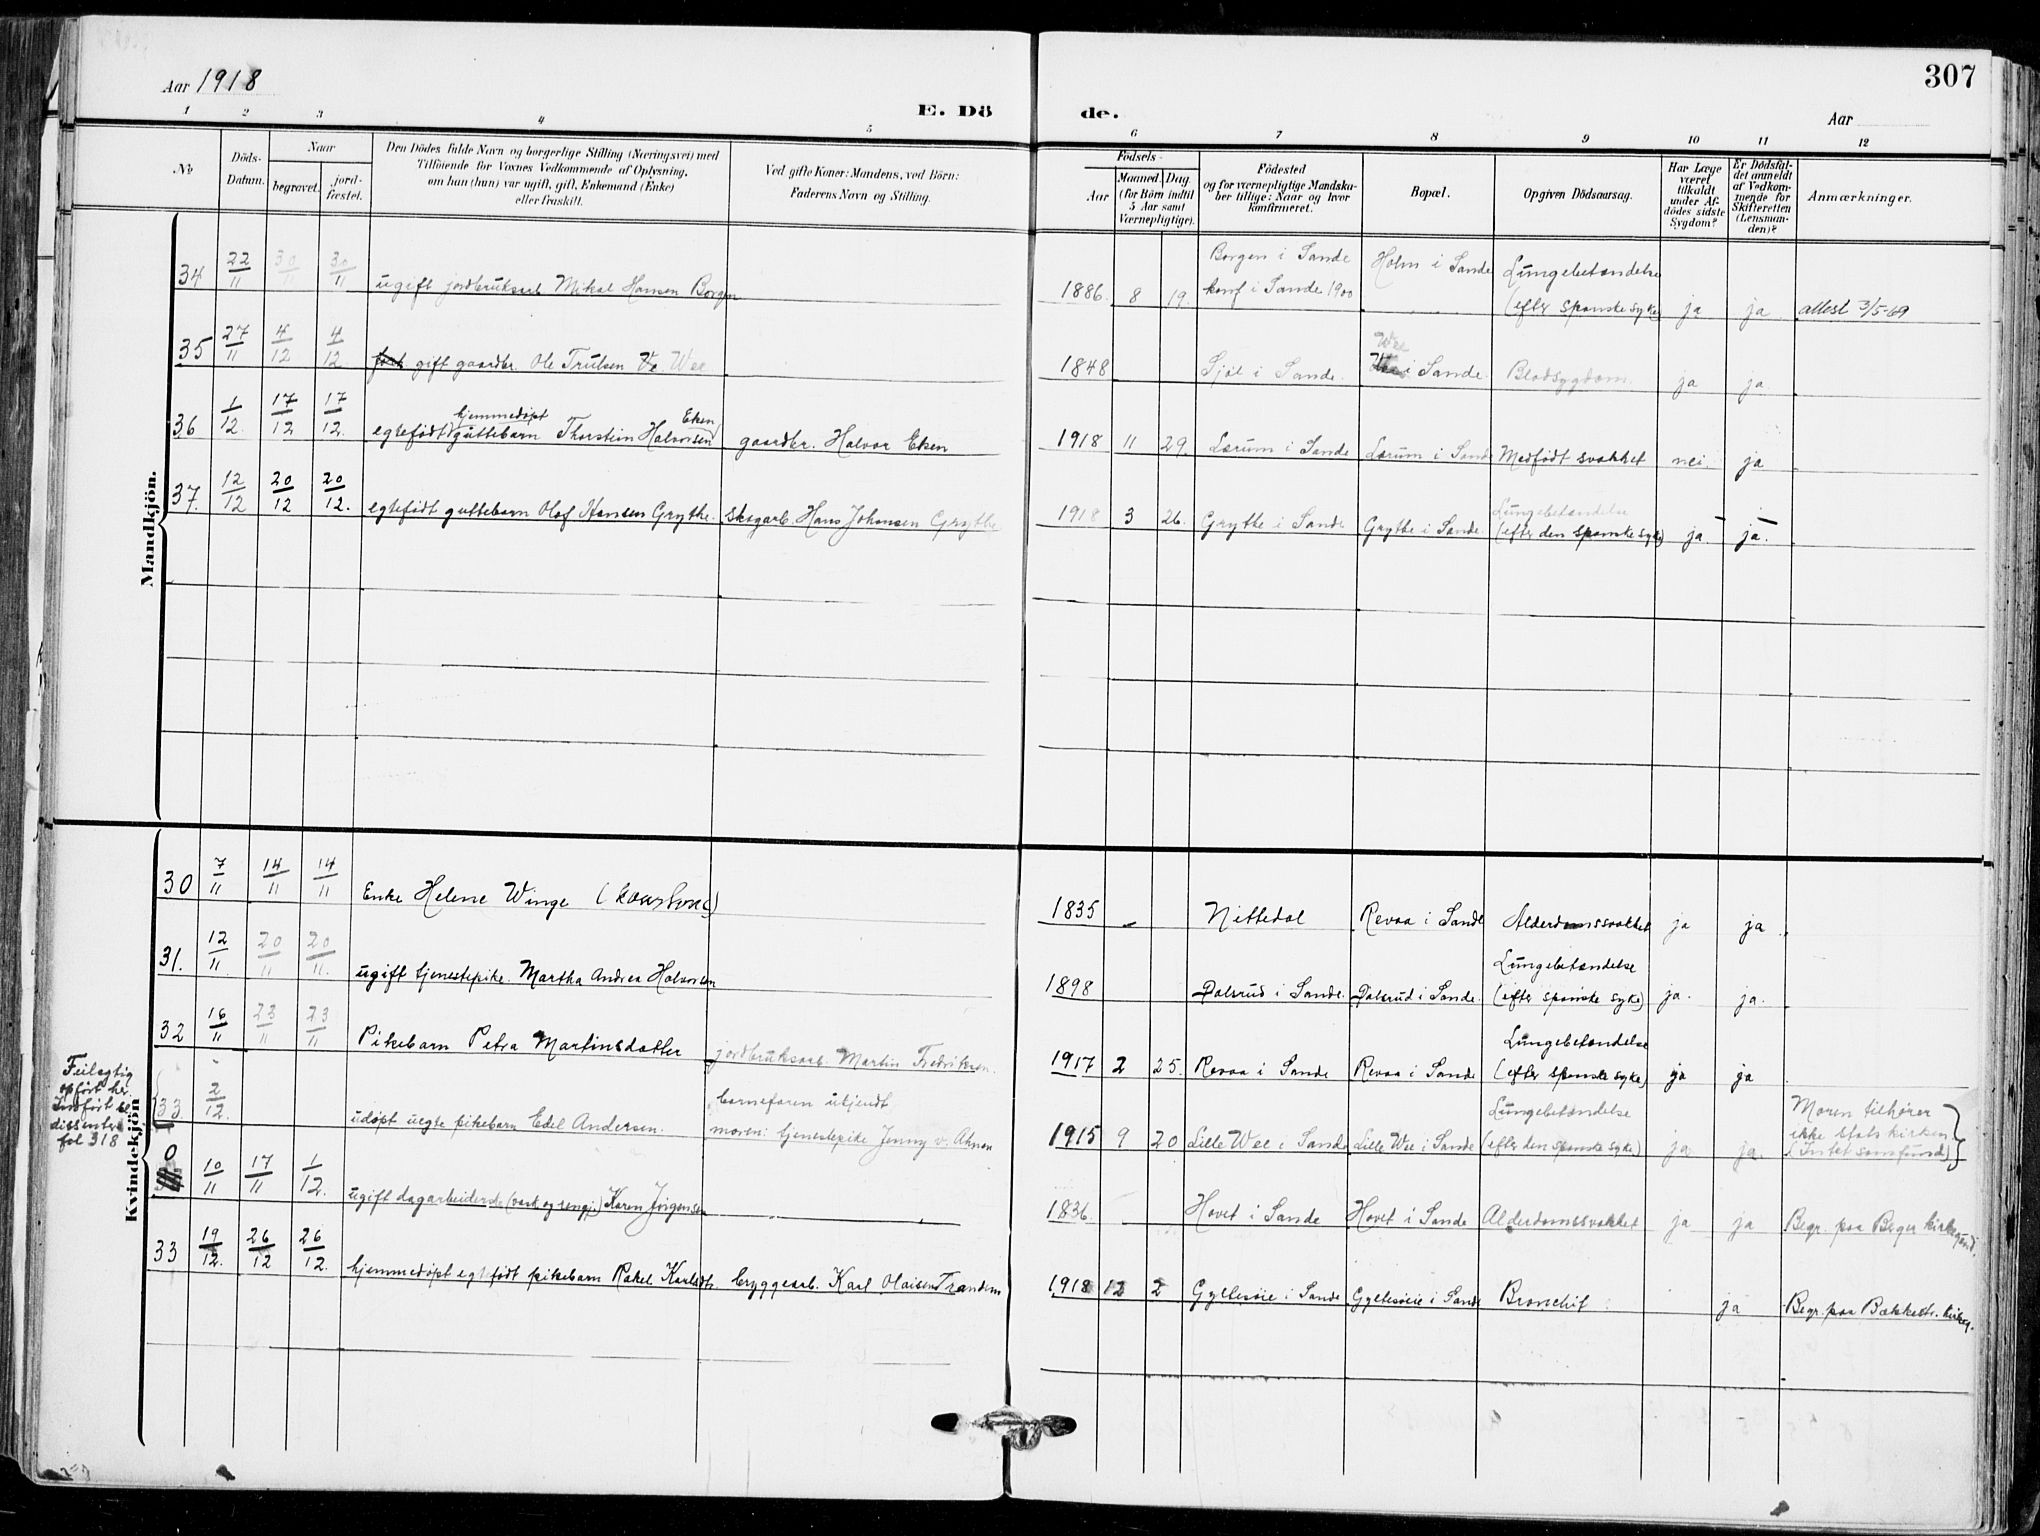 307
Aar 1918
E. Dö de.
Aar
1 2 3 4 5 6 7 8 9 10 11 12
No
Döds-Datum.
Naar
begravet.
jord-fæstet.
Den Dödes fulde Navn og borgerlige Stilling (Næringsvei) med
Tilföiende for Voxnes Vedkommende af Oplysning,
om han (hun) var ugift, gift, Enkemand (Enke)
eller fraskilt.
Ved gifte Koner: Mandens, ved Börn:
Faderens Navn og Stilling.
Födsels-
Aar
Maaned. Dag
(for Börn indtil
5 Aar samt
Værnepligtige).
Födested
og for værnepligtige Mandska-
ber tillige: Naar og hvor
konfirmeret.
Bopæl.
Opgiven Dödsaarsag.
Har Læge
været
tilkaldt
under Af-
dödes sidste
Sygdom?
Er Dödsfal-
det anmeldt
af Vedkom-
mende for
Skifteretten
(Lensman-
den)?
Anmærkninger.
Mandkjön.
34 22/11 30/11 30/11 ugift jordbruksarb Mikal Hansen Borgen 1886 8 19. Borgen i Sande
konf i Sande 1900 Holm i Sande Lungebetændelse
(efter spanske syke) ja ja attest 3/5-69
35 27/11 4/12 4/12 gift gaardbr. Ole Trulsen Wee 1848 Sjøl i Sande. Wee
i Sande. Blodsygdom. ja ja
36 1/12. 17/12 17/12. egtefødt hjemmedøpt guttebarn Thorstein Halvorsen Eken gaardbr. Halvor Eken 1918 11 29. Lærum i Sande Lærum i Sande Medfødt svakhet nei. ja
37. 12/12 20/12 20/12. egtefødt guttebarn Olaf Hansen Grythe. skogarb. Hans Johansen Grythe 1918 3 26. Grythe i Sande Grythe i Sande Lungebetændelse
(efter den spanske syke) ja ja.
Kvindekjön
30 7/11 14/11 14/11 Enke Helene Winge 1835 – Nittedal Revaa i Sande Alderdomssvakhet ja ja
31. 12/11. 20/11 20/11. ugift tjenestepike. Martha Andrea Halvorsen 1898 Dalsrud i Sande. Dalsrud i Sande. Lungebetændelse
(efter spanske syke) ja. ja.
32 16/11 23/11 23/11 Pikebarn Petra Martinsdatter jordbruksarb. Martin Fredriksen. 1917 2 25. Revaa i Sande Revaa i Sande Lungebetændelse
(efter spanske syke) ja ja
Feilagtig
opført her
Indført
dissenter
fol 318
33. 2/12. udøpt uegte pikebarn Edel Andersen. barnefaren ukjendt
moren: tjenestepike Jenny 1915 9 20 Lille Wee i Sande Lille Wee i Sande Lungebetændelse
(efter den spanske syke) ja ja. Moren tilhører
ikke statskirken
(Intet samfund)
0 10/11 17/11 1/12. ugift dagarbeiderske (vask og rengj.) Karen Jørgensen 1836 Hovet i Sande Hovet i Sande Alderdomssvakhet ja ja Begr. paa Berger kirkegaard.
33 19/12. 26/12 26/12. hjemmedøpt egtefødt pikebarn Rakel Karlsdtr. bryggearb. Karl Olaisen Trandem 1918 12 2 Gyltesøie i Sande Gyltesøie i Sande Bronchit ja Begr. paa Bækkestr. kirkeg.